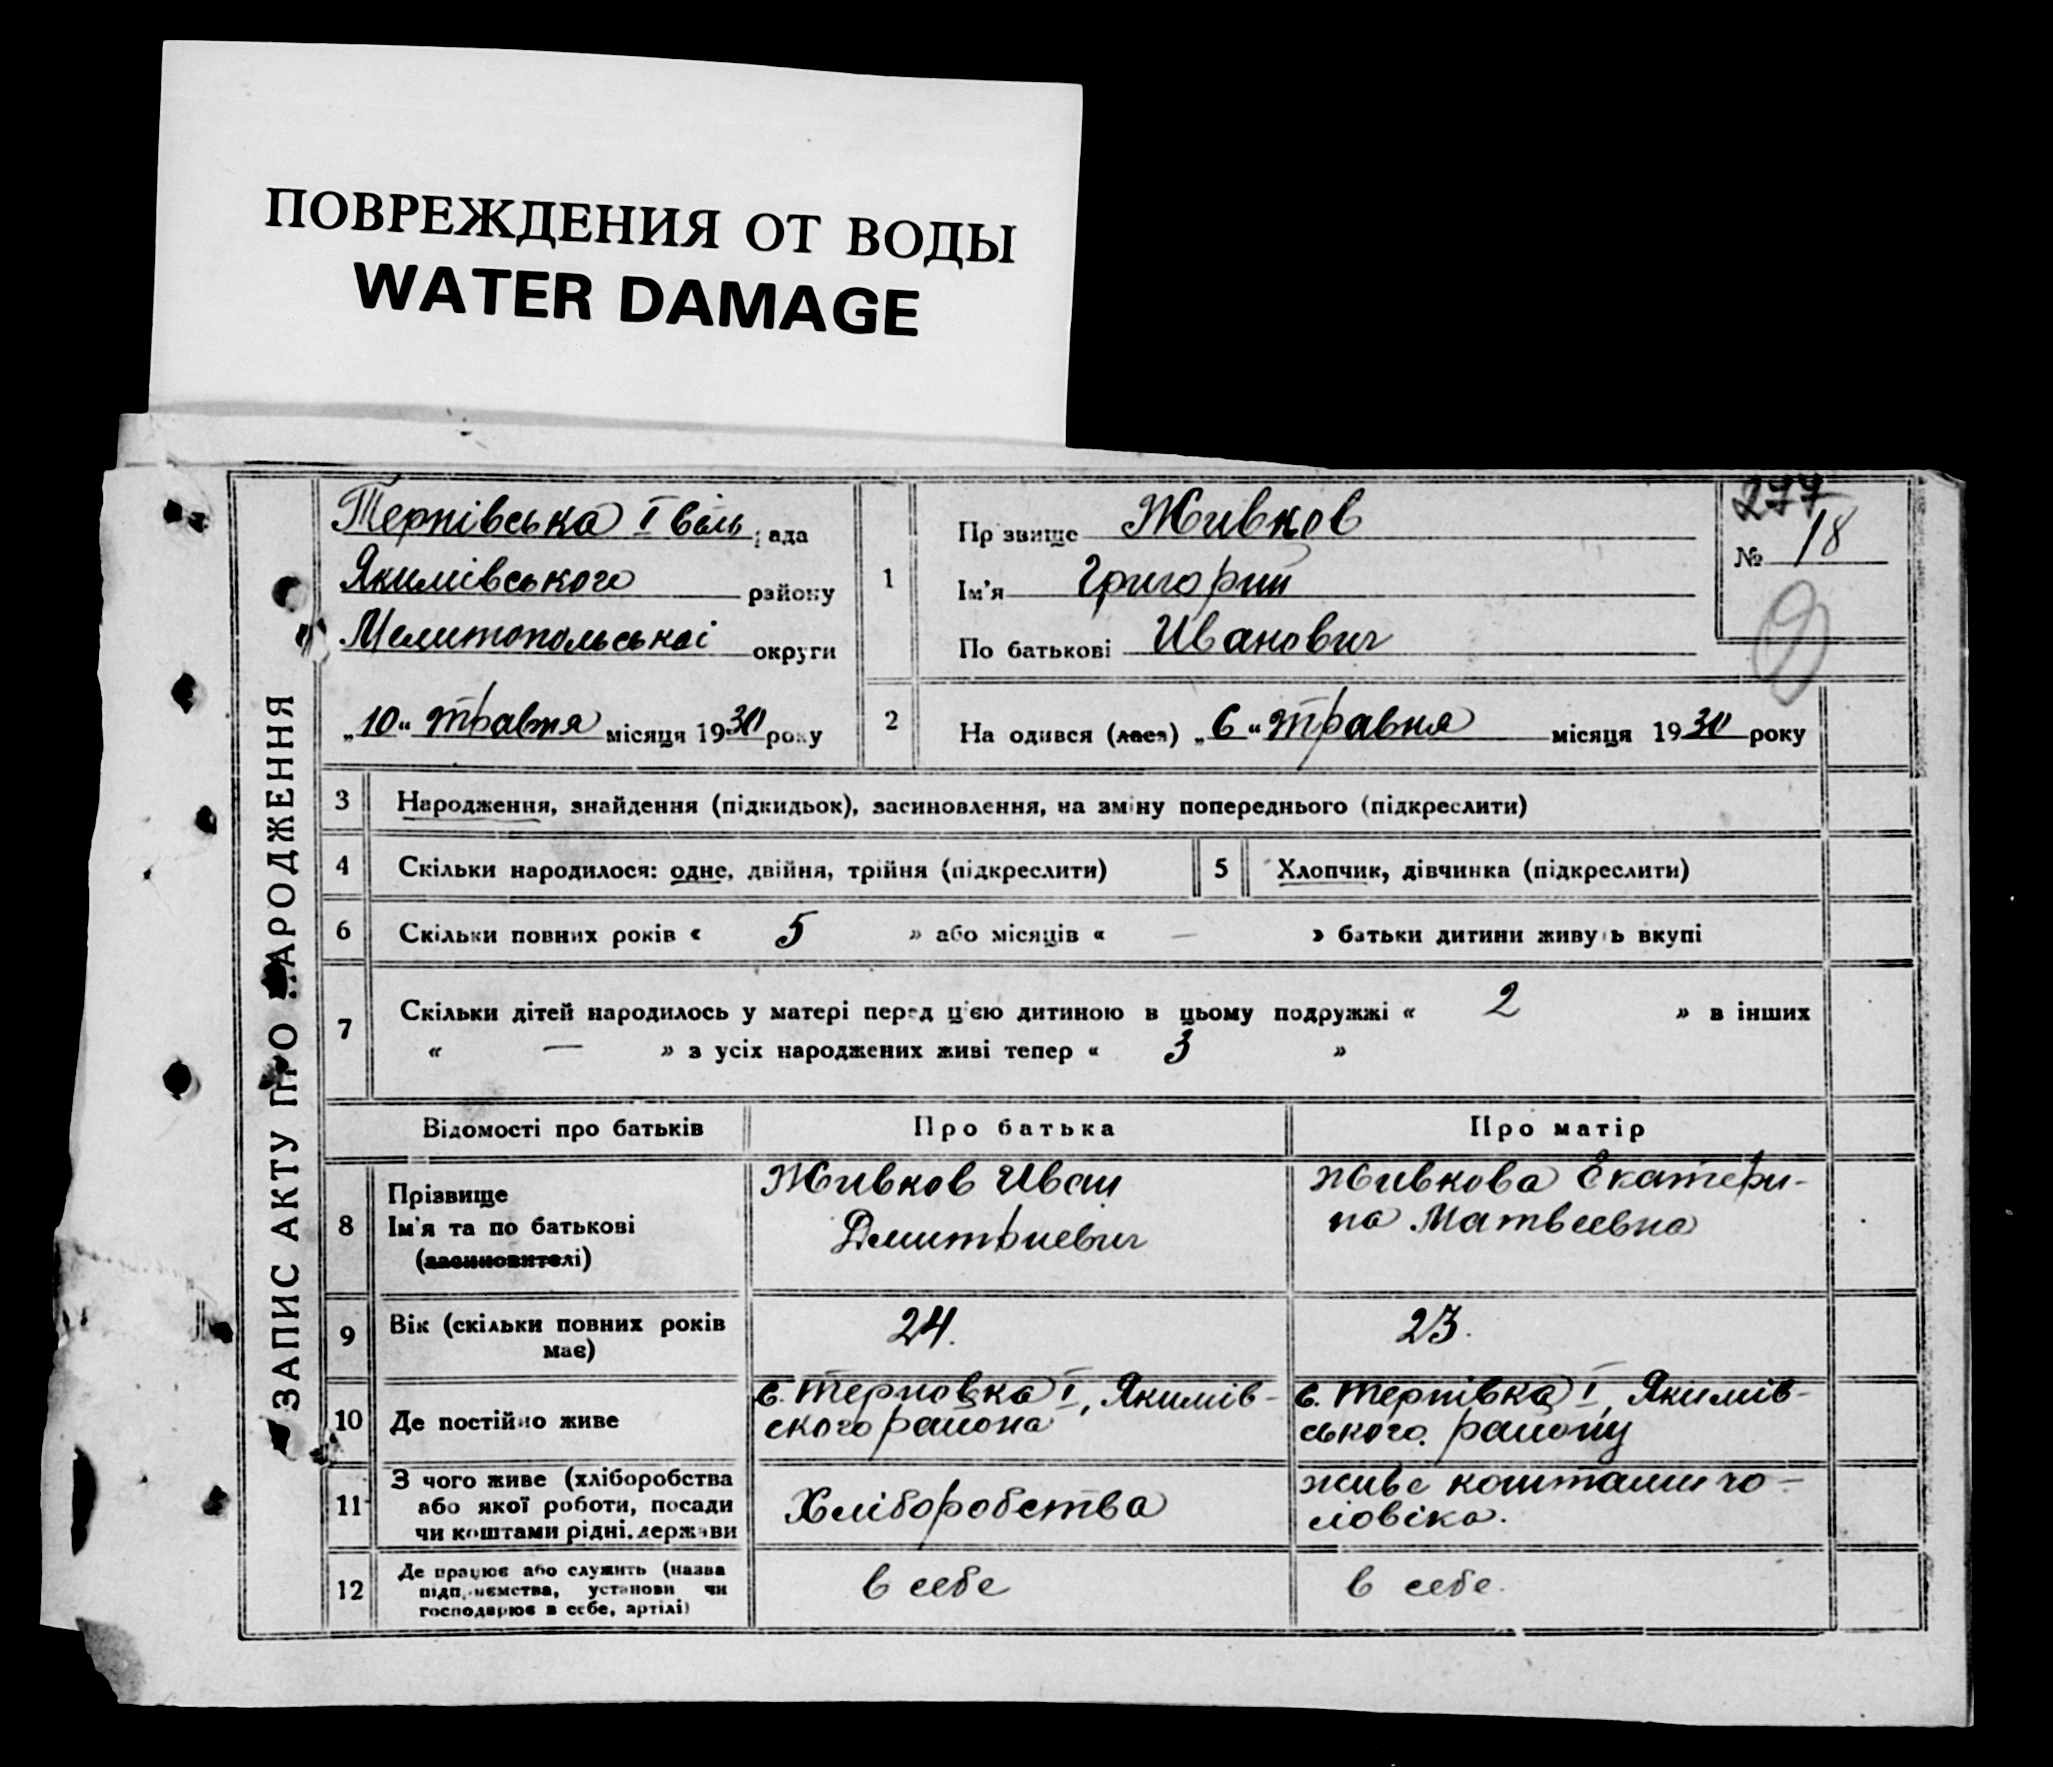 ПОВРЕЖДЕНИЯ ОТ ВОДЫ
WATER DAMAGE
ЗАПИС АКТУ ПРО НАРОДЖЕННЯ
Терпівська I віль рада
Якимівського району
Мелитопольськоі округи
„10“ травня місяця 1930 року
277
№ 18
1
Прізвище Живков
Ім'я Григорий
По батькові Иванович
2
Народився (лася) „6“ травня місяця 1930 року
3 Народження, знайдення (підкидьок), засиновлення, на зміну попереднього (підкреслити)
4 Скільки народилося: одне, двійня, трійня (підкреслити)
5 Хлопчик, дівчинка (підкреслити)
6 Скільки повних років « 5 » або місяців « — » батьки дитини живуть вкупі
7 Скільки дітей народилось у матері перед ц'єю дитиною в цьому подружжі « 2 » в інших
« — » з усіх народжених живі тепер « 3 »
Відомості про батьків Про батька Про матір
8 Прізвище
Ім'я та по батькові
(засиновителі)
Живков Иван
Дмитриевич
Живкова Екатери-
на Матвеевна
9 Вік (скільки повних років
має)
24.
23.
10 Де постійно живе
с. Терновка I, Якимів-
ского района
с. Терпівка I, Якимів-
ського району
11 З чого живе (хліборобства
або якої роботи, посади
чи коштами рідні, держави
Хліборобства
живе коштами чо-
ловіка.
12 Де працює або служить (назва
підприємства, установи чи
господарює в себе, артілі)
в себе
в себе.